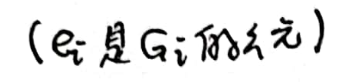 (eᵢ 是 Gᵢ 的幺元)